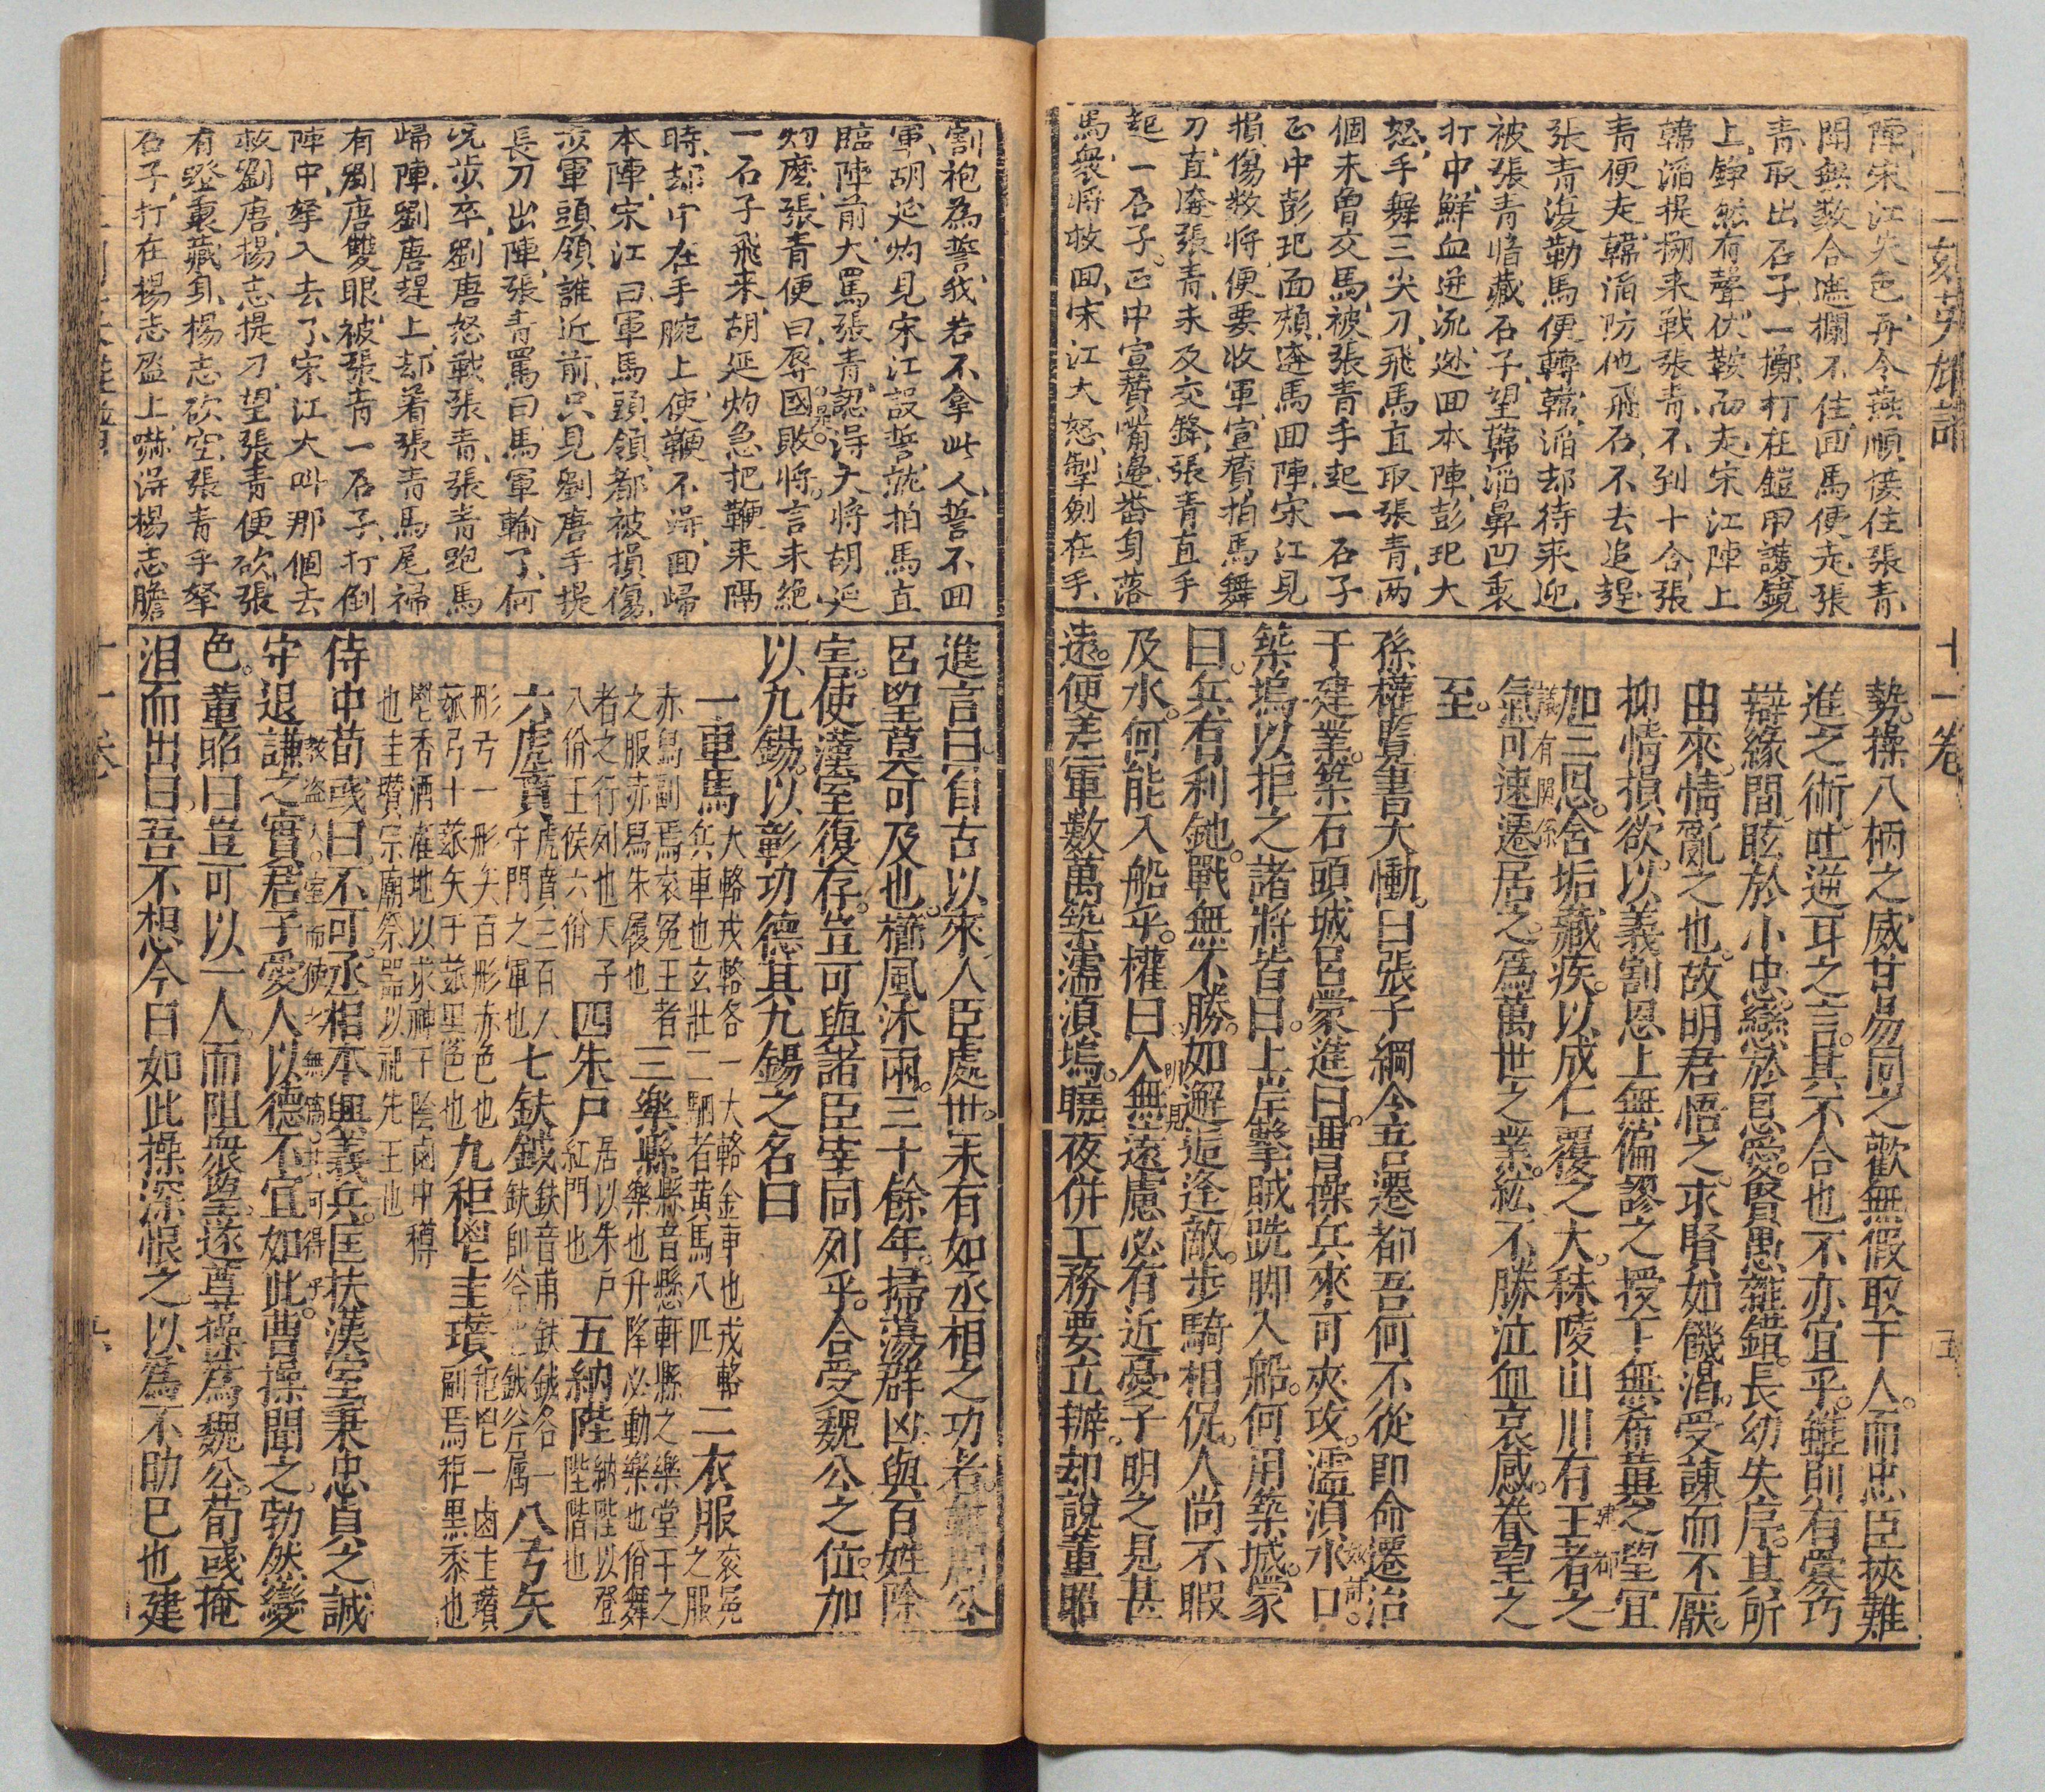 二刻英雄譜
十一卷
五
陣宋江失色再令燕順接住張青
聞無數合遮攔不住回馬便走張
青取出石子一擲打在鎧甲護鏡
上錚然有聲伏鞍而走宋江陣上
韓滔提搠来戰張青不到十合張
青便走韓滔防他飛石不去追趕
張青復勒馬便轉韓滔却待来迎
被張青暗藏石子望韓滔鼻凹裏
打中鮮血迸流逃回本陣彭玘大
怒手舞三尖刀飛馬直取張青両
個未曾交馬被張青手起一石子
正中彭玘面頰奔馬回陣宋江見
損傷数將便要收軍宣贊拍馬舞
刀直奔張青未及交鋒張青直手
起一石子正中宣贊嘴邊番身落
馬衆將救回宋江大怒掣劍在手
勢操八柄之威甘易同之歡無假取于人而忠臣挾難
進之術吐逆耳之言其不合也不亦宜乎雖則有爰巧
辯緣間眩於小忠戀於恩愛賢愚雜錯長幼失序其所
由來情亂之也故明君悟之求賢如饑渴受諫而不厭
抑情損欲以義割恩上無偏謬之授下無希冀之望宜
加三思含垢藏疾以成仁覆之大秣陵山川有王者之
議有関係
建都一
氣可速遷居之爲萬世之業紘不勝泣血哀感眷望之
至
孫權覽書大慟曰張子綱令吾遷都吾何不從即命遷治
于建業築石頭城呂蒙進曰曹操兵來可夾攻濡湏水口
築塢以拒之諸將皆曰上岸擊賊跣脚入船何用築城蒙
曰兵有利鈍戰無不勝如邂逅逢敵步騎相促人尚不暇
及水何能入船乎權曰人無遠慮必有近憂子明之見甚
明見
遠便差軍數萬築濡湏塢曉夜併工務要立辦却說董昭
割袍為誓我若不拿此人誓不回
軍胡延灼見宋江設誓就拍馬直
臨陣前大罵張青認得大將胡延
灼麽張青便曰辱國敗將言未絶
一石子飛来胡延灼急把鞭来隔
時却中在手腕上使鞭不得回歸
本陣宋江曰軍馬頭領都被損傷
步軍頭領誰近前只見劉唐手提
長刀出陣張青罵曰馬軍輸了何
况步卒劉唐怒戰張青張青跑馬
歸陣劉唐趕上却着張青馬尾掃
有劉唐雙眼被張青一石子打倒
陣中拏入去了宋江大叫那個去
救劉唐楊志提刀望張青便砍張
有蹬裏藏身楊志砍空張青手拏
石子打在楊志盔上嚇得楊志膽
進言曰自古以來人臣處世未有如丞相之功者雖周公
呂望莫可及也櫛風沐雨三十餘年掃蕩群凶與百姓除
害使漢室復存豈可與諸臣宰同列乎合受魏公之位加
以九錫以彰功德其九錫之名曰
一車馬 大輅戎輅各一大輅金車也戎輅
兵車也玄牡二駟者黃馬八匹 二衣服 衮冕之服
赤舄副焉衮冕王者
之服赤舄朱履也 三樂縣 縣音懸軒縣之樂堂干之
樂也升降必動樂也佾舞
者之行列也天子
八佾王侯六佾 四朱戶 居以朱戶
紅門也 五納陛 納陛以登
陛階也
六虎賁 虎賁三百人
守門之軍也 七鈇鉞 鈇音甫鈇鉞各一
鈇即斧也鉞斧属 八弓矢
彤弓一彤矢百彤赤色也
玈弓十玈矢千玈黑色也 九秬鬯圭瓚 秬鬯一卣圭瓚
副焉秬黑黍也
鬯香酒灌地以求神于陰卣中樽
也圭瓚宗廟祭器以祀先王也
侍中荀彧曰不可丞相本興義兵匡扶漢室秉忠貞之誠
守退謙之實君子愛人以德不宜如此曹操聞之勃然變
教盜入室而使之無竊其可得乎
色董昭曰豈可以一人而阻衆望遂尊操爲魏公荀彧掩
泪而出曰吾不想今日如此操深恨之以爲不助已也建